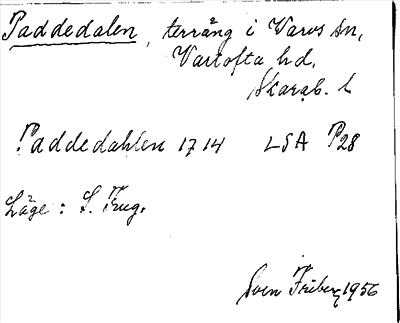 Paddedalen, terräng i Varvs sn,
Vartofta hd,
Skarab. l
Paddedahlen 1714 LSA P28
Läge: S. Frug.
Sven Friberg 1956